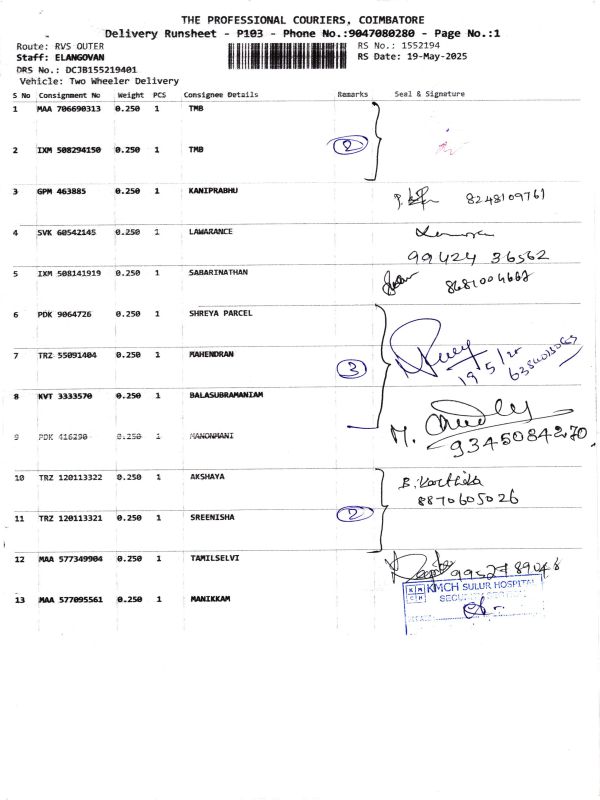 THE PROFESSIONAL COURIERS, COIMBATORE
Delivery Runsheet - P103 - Phone No.:9047080280 - Page No.:1
Route: RVS OUTER RS No.: 1552194
Staff: ELANGOVAN RS Date: 19-May-2025
DRS No.: DCJB155219401
Vehicle: Two Wheeler Delivery
S No Consignment No Weight PCS Consignee Details Remarks Seal & Signature
1 MAA 706690313 0.250 1 TMB
2 IXM 508294150 0.250 1 TMB 2
3 GPM 463885 0.250 1 KANIPRABHU 8248109761
4 SVK 60542145 0.250 1 LAWARANCE
99424 36562
5 IXM 508141919 0.250 1 SABARINATHAN 8681004662
6 PDK 9064726 0.250 1 SHREYA PARCEL
7 TRZ 55091404 0.250 1 MAHENDRAN 3 19/5/25
8 KVT 3333570 0.250 1 BALASUBRAMANIAM
9 PDK 416290 0.250 1 MANONMANI M. 9345084270
10 TRZ 120113322 0.250 1 AKSHAYA B. Karthika
8870605026
11 TRZ 120113321 0.250 1 SREENISHA 2
12 MAA 577349904 0.250 1 TAMILSELVI 9952789048
KMCH SULUR HOSPITAL
13 MAA 577095561 0.250 1 MANIKKAM